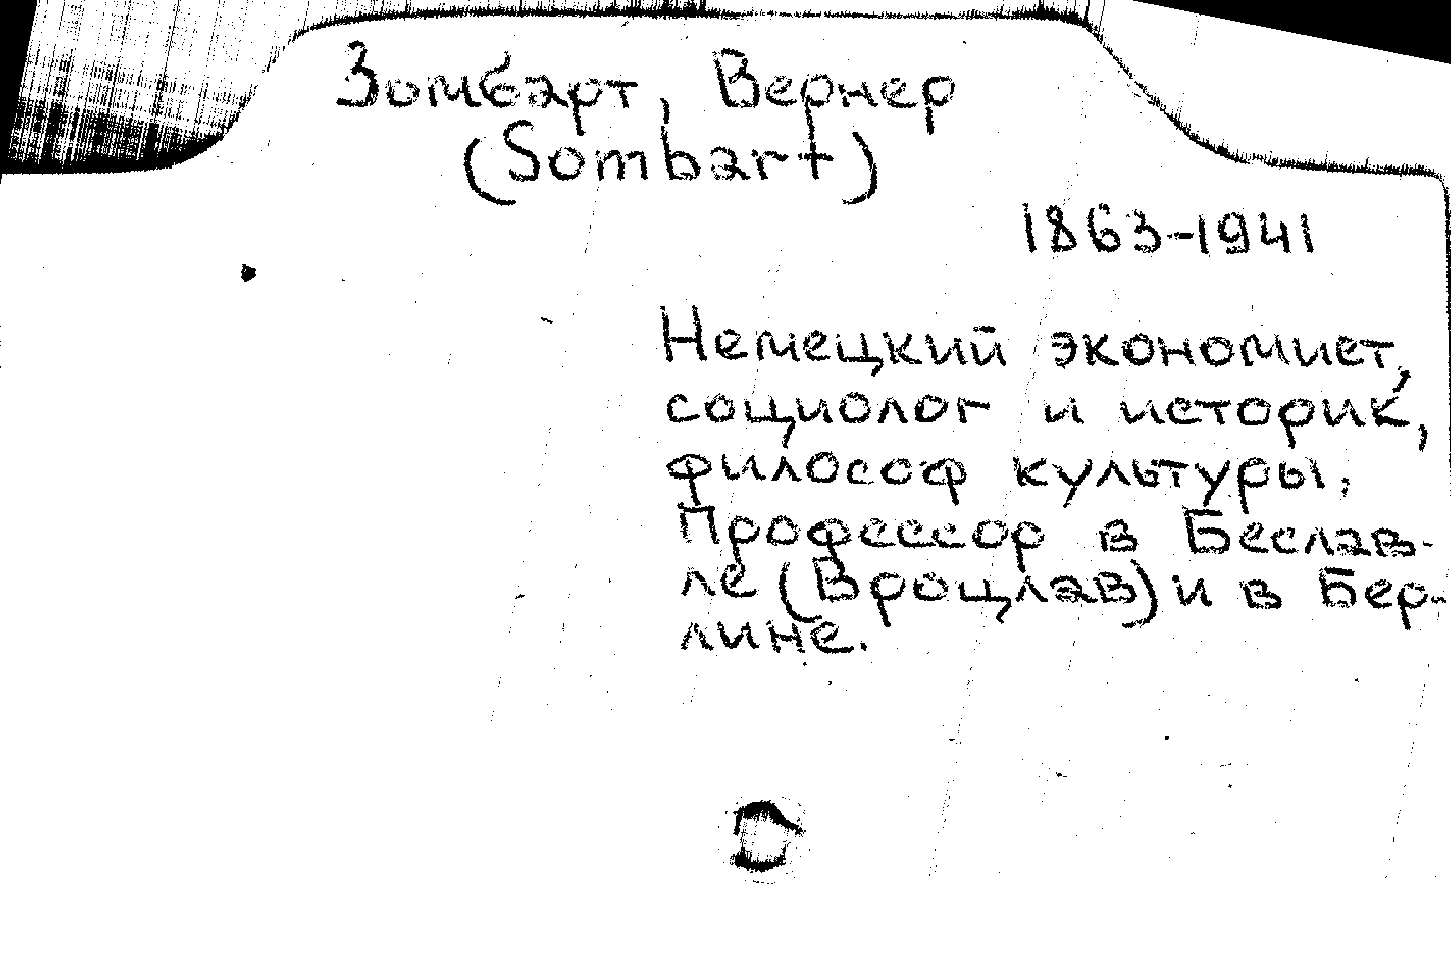 Зомбарт, Вернер
(Sombart)
1863-1941
Немецкий экономист,
социолог и историк,
философ культуры.
Профессор в Беслав-
ле (Вроцлав) и в Бер-
лине.